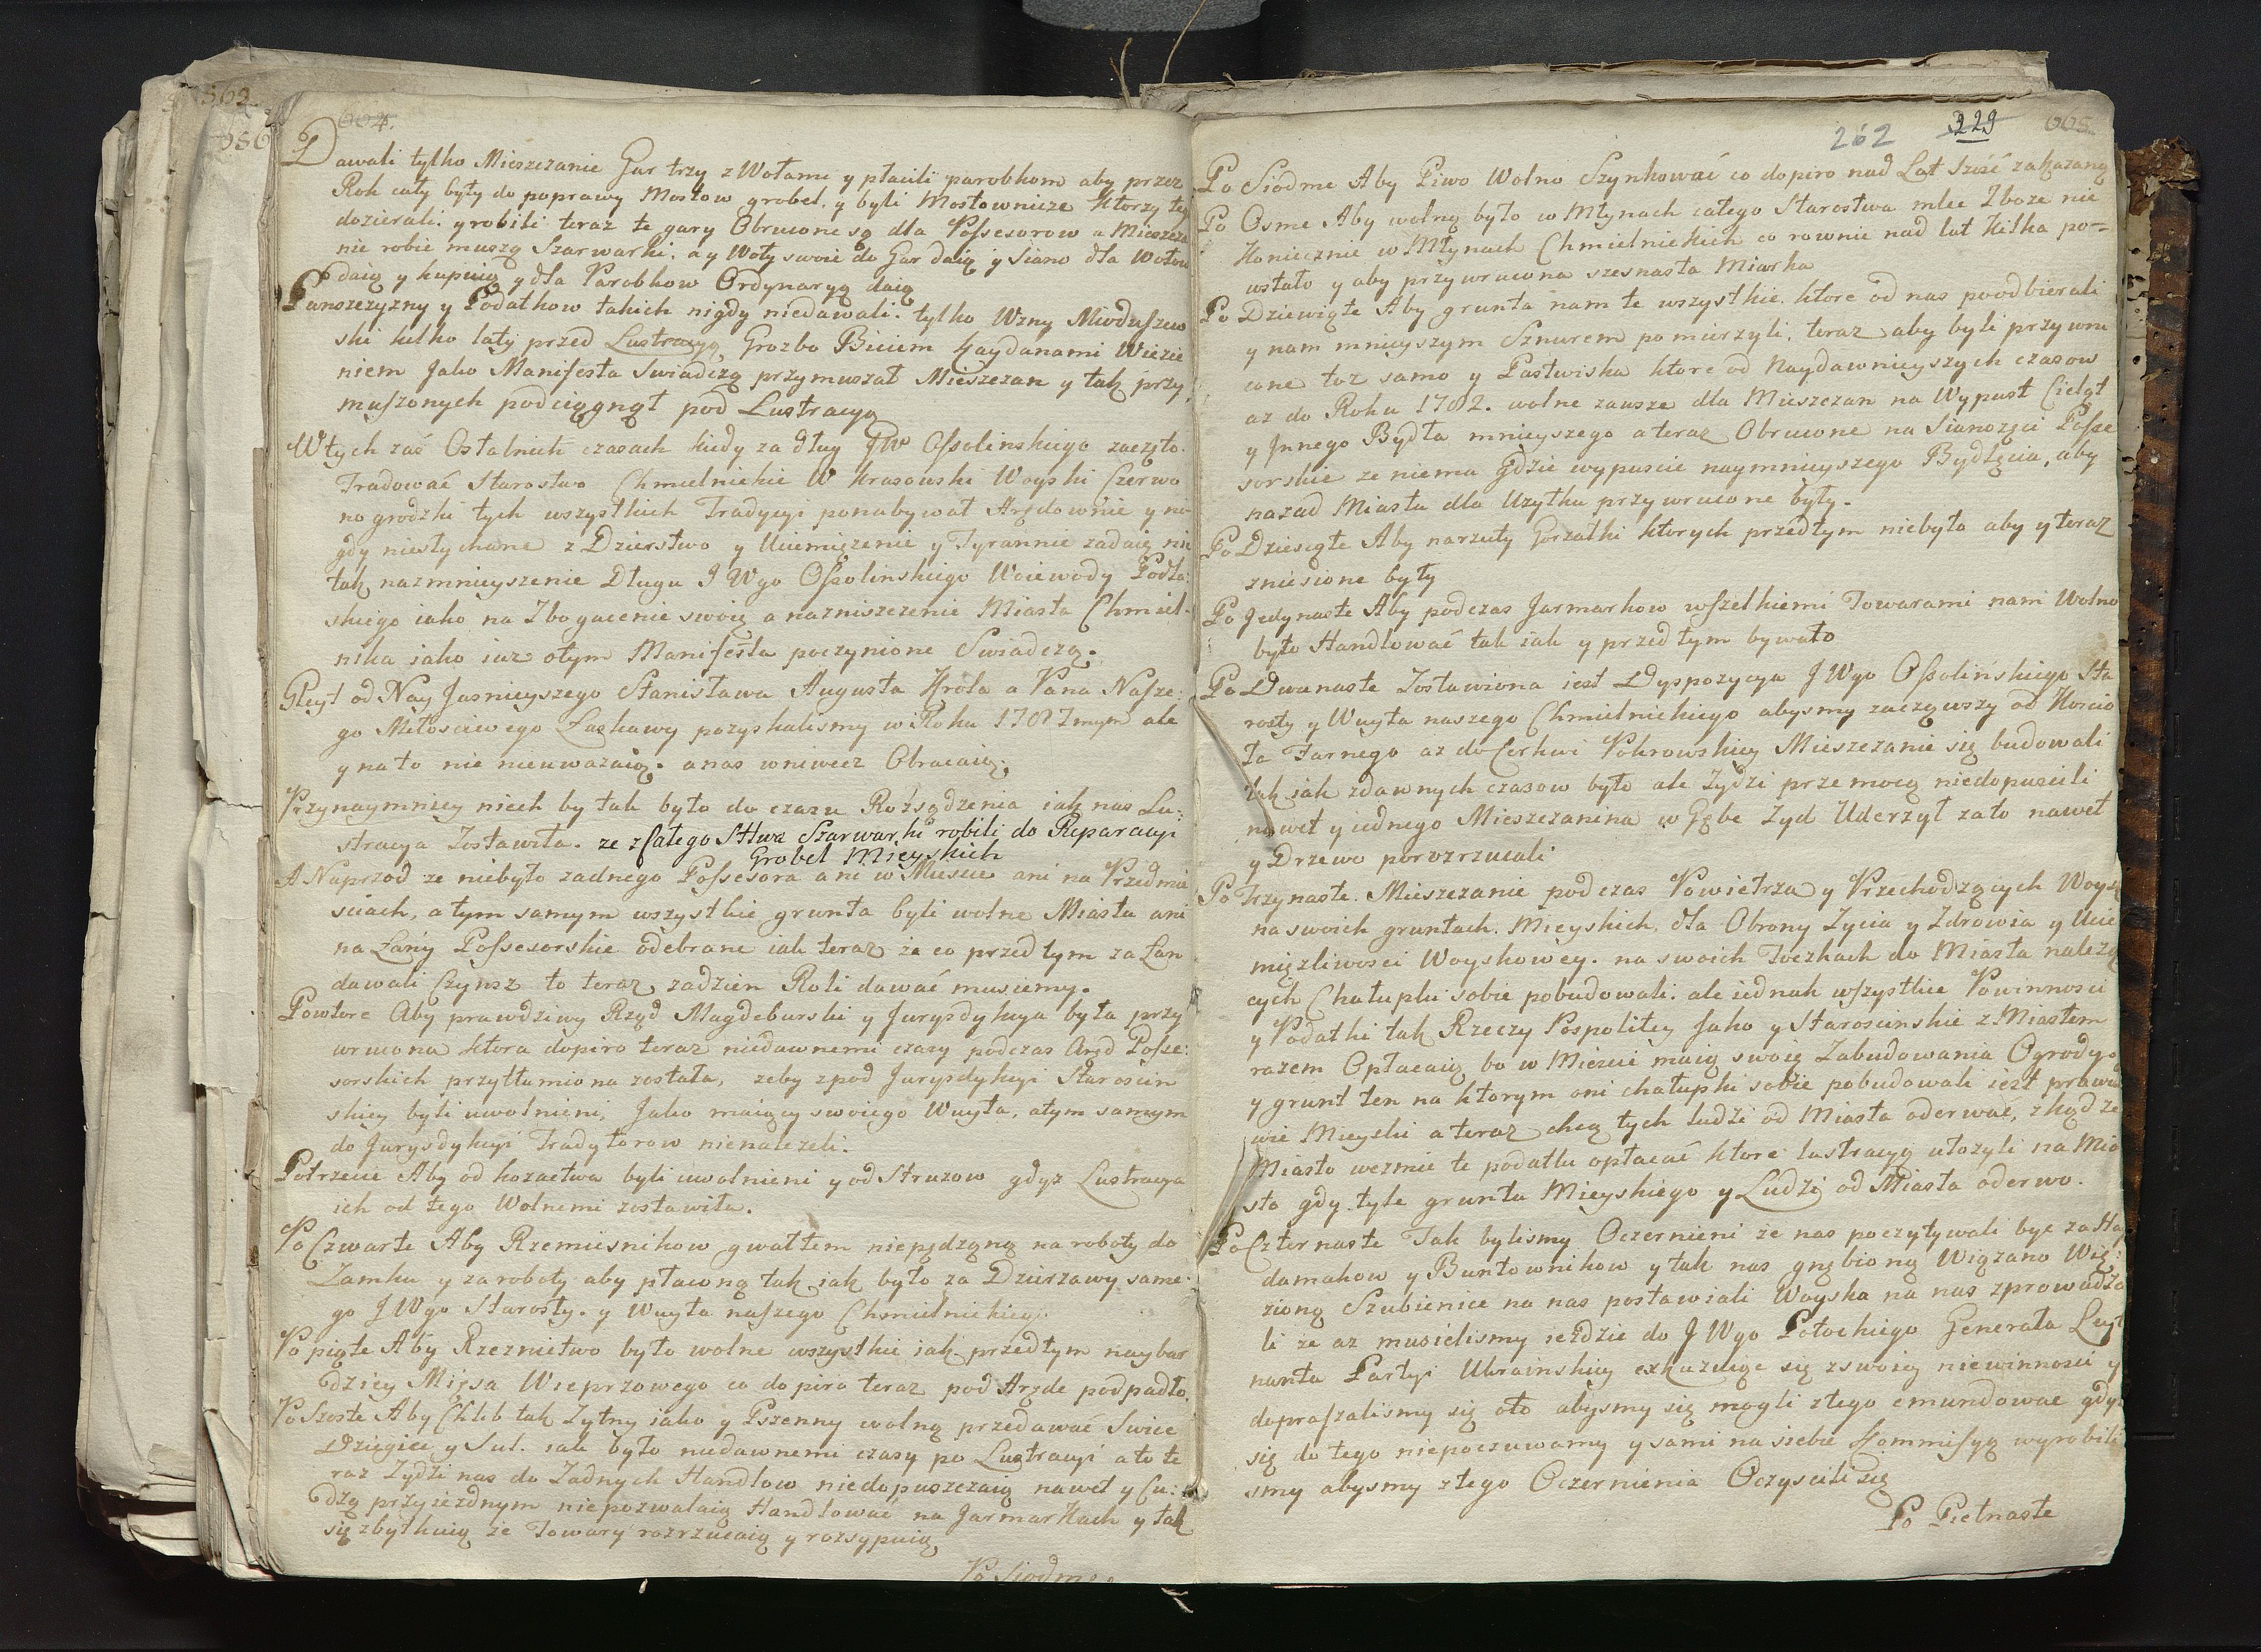 562
604.
Dawali tylko Mieszczanie Gar trzy z Wołami y płacili parobkom aby przez
Rok cały były do poprawy Mostow grobel. y byli Mostownicze Ktorzy tey
dozierali. y robili teraz te gary Obrucone są dla Possesorow a Mieszcza
nie robić muszą Szarwarki. a y Woły swoie do Gar daią y Siano dla Wołow
daią y kupuią y dla Parobkow Ordynaryą daią
Panszczyzny y Podatkow takich nigdy niedawali. tylko Wzny Mioduszew
ski kilko laty przed Lustracyą, Grozbo Biciem Kaydanami Wiezie
niem Jako Manifesta Swiadczą przymuszał Mieszczan y tak przy
muszonych podciągnął pod Lustracyą
Wtych zaś Ostatnich czasach kiedy za dług JW Ossolinskiego zaczęto.
Tradować Starostwo Chmielnickie W Krasowski Woyski Czerwo
nogrodzki tych wszystkich Tradycyi ponabywał Arędownie y ni-
gdy niesłychane z Dzierstwo y Uciemięzenie y Tyrannie zadaią nie
tak nazmnieyszenie Długu J Wgo Ossolinskiego Woiewody Podla:
skiego iako na Zbogacenie swoie a nazniszczenie Miasta Chmiel-
nika iako iuz otym Manifesta poczynione Swiadczą.
Gleyt od Nay Jasnieyszego Stanisława Augusta Króla a Pana Nasze:
go Miłosciwego Łaskawy pozyskalismy w Roku 1787mym ale
y na to nie nieuwazaią. a nas wniwecz Obracaią.
Przynaymniey niech by tak było do czasu Rozsądzenia iak nas Lu:
stracya Zostawiła. ze z Całego Sttwa Szarwarki robili do Reparacyi
Grobel Mieyskich
A Naprzod ze niebyło zadnego Possesora ani w Miescie ani na Przedmie
sciach, a tym samym wszystkie grunta byli wolne Miasta ani
na Łany Possesorskie odebrane iak teraz że co przed tym za Łan
dawali Czynsz to teraz zadzien Roli dawać musiemy.
Powtore Aby prawdziwy Rząd Magdeburski y Jurysdykcya była przy
wrucona ktora dopiro teraz niedawnemi czasy podczas Aręd Posse:
sorskich przytłumiona została, zeby zpod Jurysdykcyi Starościn
skiey byli uwolnieni, Jako maiący swoiego Wuyta, atym samym
do Jurysdykcyi Tradytorow nienalezeli.
Potrzecie Aby od kozactwa byli uwolnieni y od Struzow gdyz Lustracya
ich od tego Wolnemi zostawiła.
Po Czwarte Aby Rzemiesnikow gwałtem niepędzoną na roboty do
Zamku y za roboty aby płaconą tak iak było za Dzierzawy same:
go J Wgo Starosty. y Wuyta naszego Chmielnickiey.
Po piąte Aby Rzeznictwo było wolne wszystkie iak przedtym naybar
dziey Mięsa Wieprzowego co dopiro teraz pod Arędę podpadło.
Po Szoste Aby Chlib tak Zytny iako y Pszenny wolną przedawać Swiec
Dziegieć y Sul. iak było niedawnemi czasy po Lustracyi a to te
raz Zydzi nas do Zadnych Handlow niedopuszczaią nawet y Cu:
dzą przyiezdnym niepozwalaią Handlować na Jarmarkach y tak
się zbytkuią że Towary rozrzucaią y rozsypuią
Po Siodme.
262 229 605
Po Siódme Aby Piwo Wolno Szynkować co dopiro nad Lat Szść zakazaną
Po Osme Aby wolną było w Młynach całego Starostwa mleć Zboze nie
Koniecznie w Młynach Chmielnickich co rownie nad lat Kilka po-
wstało y aby przywrucona szesnasta Miarka
Po Dziewiąte Aby grunta nam te wszystkie. ktore od nas poodbierali
y nam mnieyszym Sznurem pomierzyli. teraz aby byli przywru
cone toz samo y Pastwiska ktore od Naydawnieyszych czasow
az do Roku 1782. wolne zawsze dla Mieszczan na Wypust Cieląt
y Jnnego Bydła mnieyszego a teraz Obrucone na Sianozęci Posse
sorskie ze niema gdzie wypuscić naymnieyszego Bydlęcia, aby
nazad Miasta dla Uzytku przywrucone były.
Po Dziesiąte Aby narzuty Gorzałki ktorych przedtym niebyło aby y teraz
zniesione były
Po Jedynaste Aby podczas Jarmarkow wszelkiemi Towarami nam Wolno
było Handlować tak iak y przed tym bywało
Po Dwunaste Zostawiona iest Dyspozycya J Wgo Ossolińskiego Sta
rosty y Wuyta naszego Chmielnickiego abysmy zacząwszy od Koscio
ła Farnego az do Cerkwi Pokrowskiey Mieszczanie się budowali
tak iak zdawnych czasow było ale Zydzi przemocą niedopuscili
nawet y iednego Mieszczanina w Gębę Zyd Uderzył za to nawet
y Drzewo porozrzucali
Po Trzynaste. Mieszczanie podczas Powietrza y Przechodzących Woysk
na swoich gruntach. Mieyskich. dla Obrony Zycia y Zdrowia y Ucie
mięzliwosci Woyskowey. na swoich Toczkach do Miasta nalezą
cych Chałupki sobie pobudowali. ale iednak wszystkie Powinnosci
y Podatki tak Rzeczy Pospolitey Jako y Starościnskie z Miastem
razem Opłacaią bo w Miescie maią swoie Zabudowania Ogrody
y grunt ten na ktorym oni chałupki sobie pobudowali iest prawi
wie Mieyski a teraz chcą tych ludzi od Miasta oderwać, zkąd ze
Miasto wezmie te podatku opłacać ktore lustracyą ułozyli na Mia
sto gdy tyle gruntu Mieyskiego y Ludzi od Miasta oderwo.
Po Czternaste Jak bylismy Oczernieni że nas poczytywali być za Hay
damakow y Buntownikow y tak nas gnębioną Wiązano Wię:
zioną Szubienice na nas postawiali Woyska na nas zprowadza
li ze az musielismy iezdzić do J Wgo Potockiego Generała Leyt
nanta Partyi Ukrainskiey exkuzuiąc się zswoiey niewinnosci y
depraszalismy się oto abysmy się mogli ztego emundować gdyz
się do tego niepoczuwamy y sami na siebie Kommissyą wyrobili
smy abysmy ztego Oczernienia Oczyscili się
Po Pietnaste